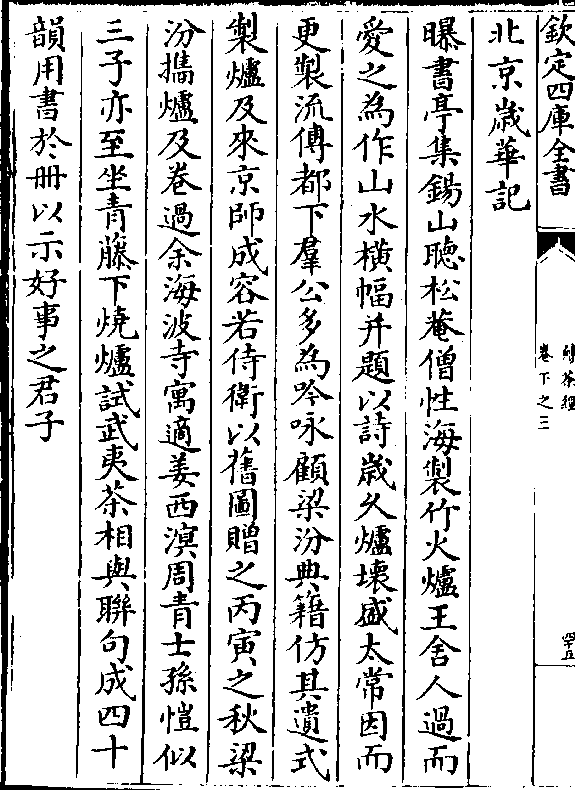 欽定四庫全書
續茶經
卷下之三
四五
北京嵗華記
曝書亭集錫山聴松菴僧性海製竹火爐王舍人過而
愛之為作山水橫幅并題以詩嵗久爐壊盛太常因而
更製流傳都下羣公多為吟咏顧梁汾典籍仿其遺式
製爐及來京師成容若侍衛以舊圖贈之丙寅之秋梁
汾攜爐及卷過余海波寺寓適姜西溟周青士孫愷似
三子亦至坐青藤下燒爐試武夷茶相與聨句成四十
韻用書於冊以示好事之君子